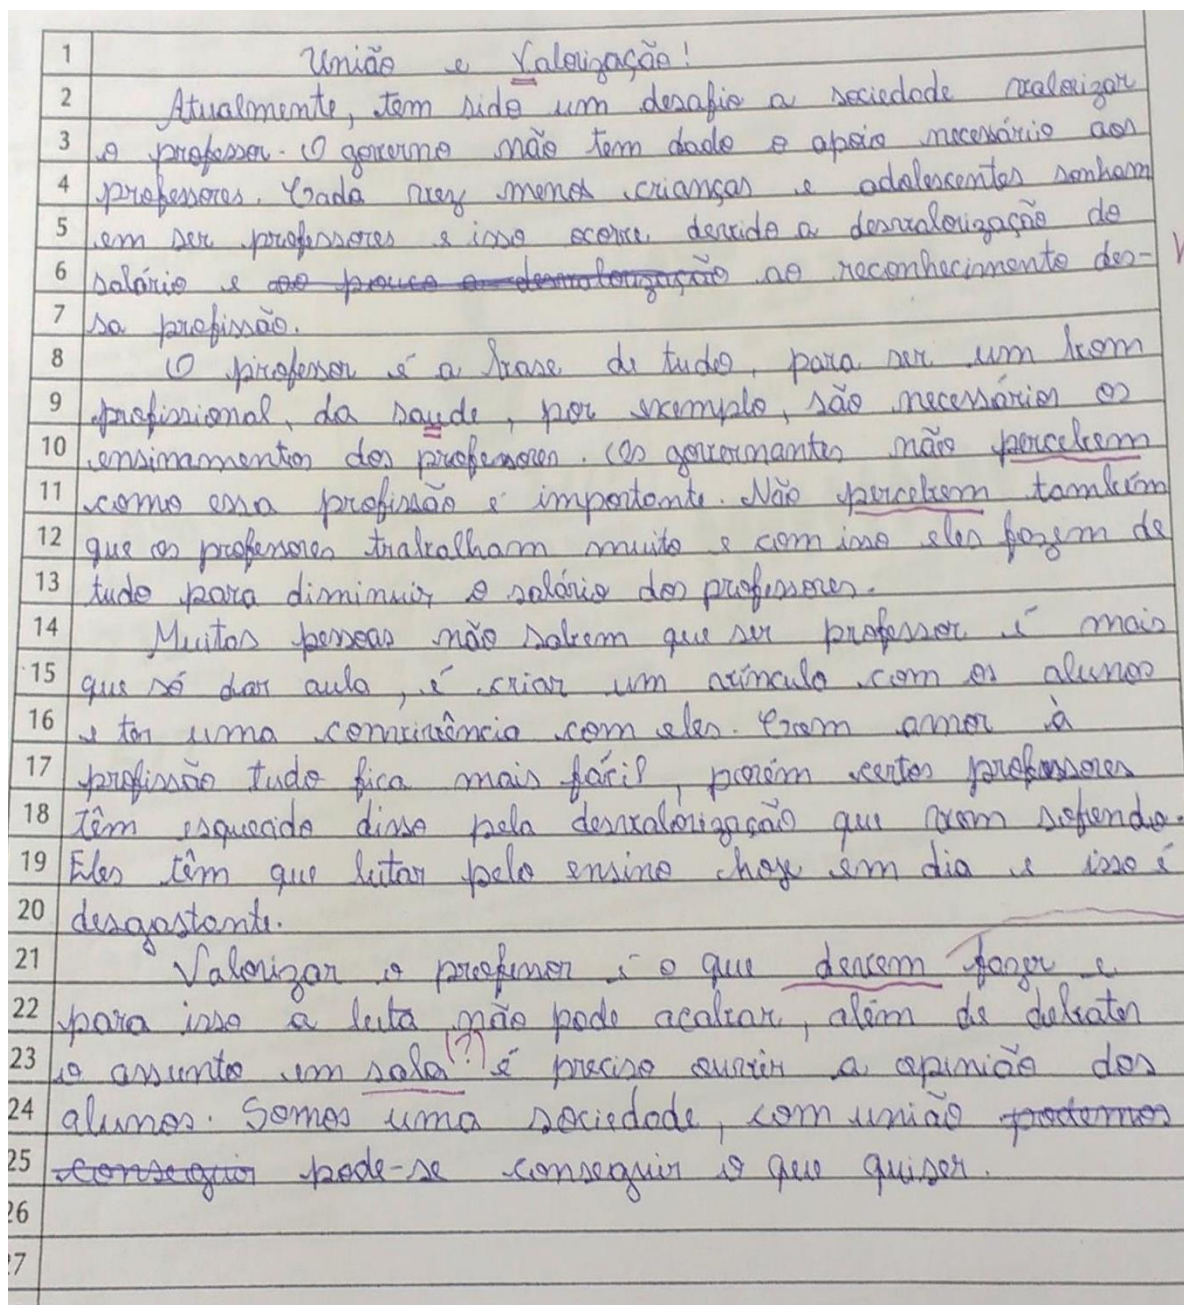 1 União e Valorização!
2 Atualmente, tem sido um desafio a sociedade valorizar
3 o professor. O governo não tem dado o apoio necessário aos
4 professores. Cada vez menos crianças e adolescentes sonham
5 em ser professores e isso ocorre devido a desvalorização do
6 salário e ao pouco a desvalorização ao reconhecimento des-
7 sa profissão.
8 O professor é a base de tudo, para ser um bom
9 profissional, da saude, por exemplo, são necessários os
10 ensinamentos dos professores. Os governantes não percebem
11 como essa profissão é importante. Não percebem também
12 que os professores trabalham muito e com isso eles fazem de
13 tudo para diminuir o salário dos professores.
14 Muitas pessoas não sabem que ser professor é mais
15 que só dar aula, é criar um vínculo com os alunos
16 e ter uma convivência com eles. Com amor à
17 profissão tudo fica mais fácil, porém certos professores
18 têm esquecido disso pela desvalorização que vem sofrendo.
19 Eles têm que lutar pelo ensino hoje em dia e isso é
20 desgastante.
21 Valorizar o professor é o que devem fazer e
22 para isso a luta não pode acabar, além de debater
23 o assunto em sala (?) é preciso ouvir a opinião dos
24 alunos. Somos uma sociedade, com união podemos
25 conseguir pode-se conseguir o que quiser.
26
27